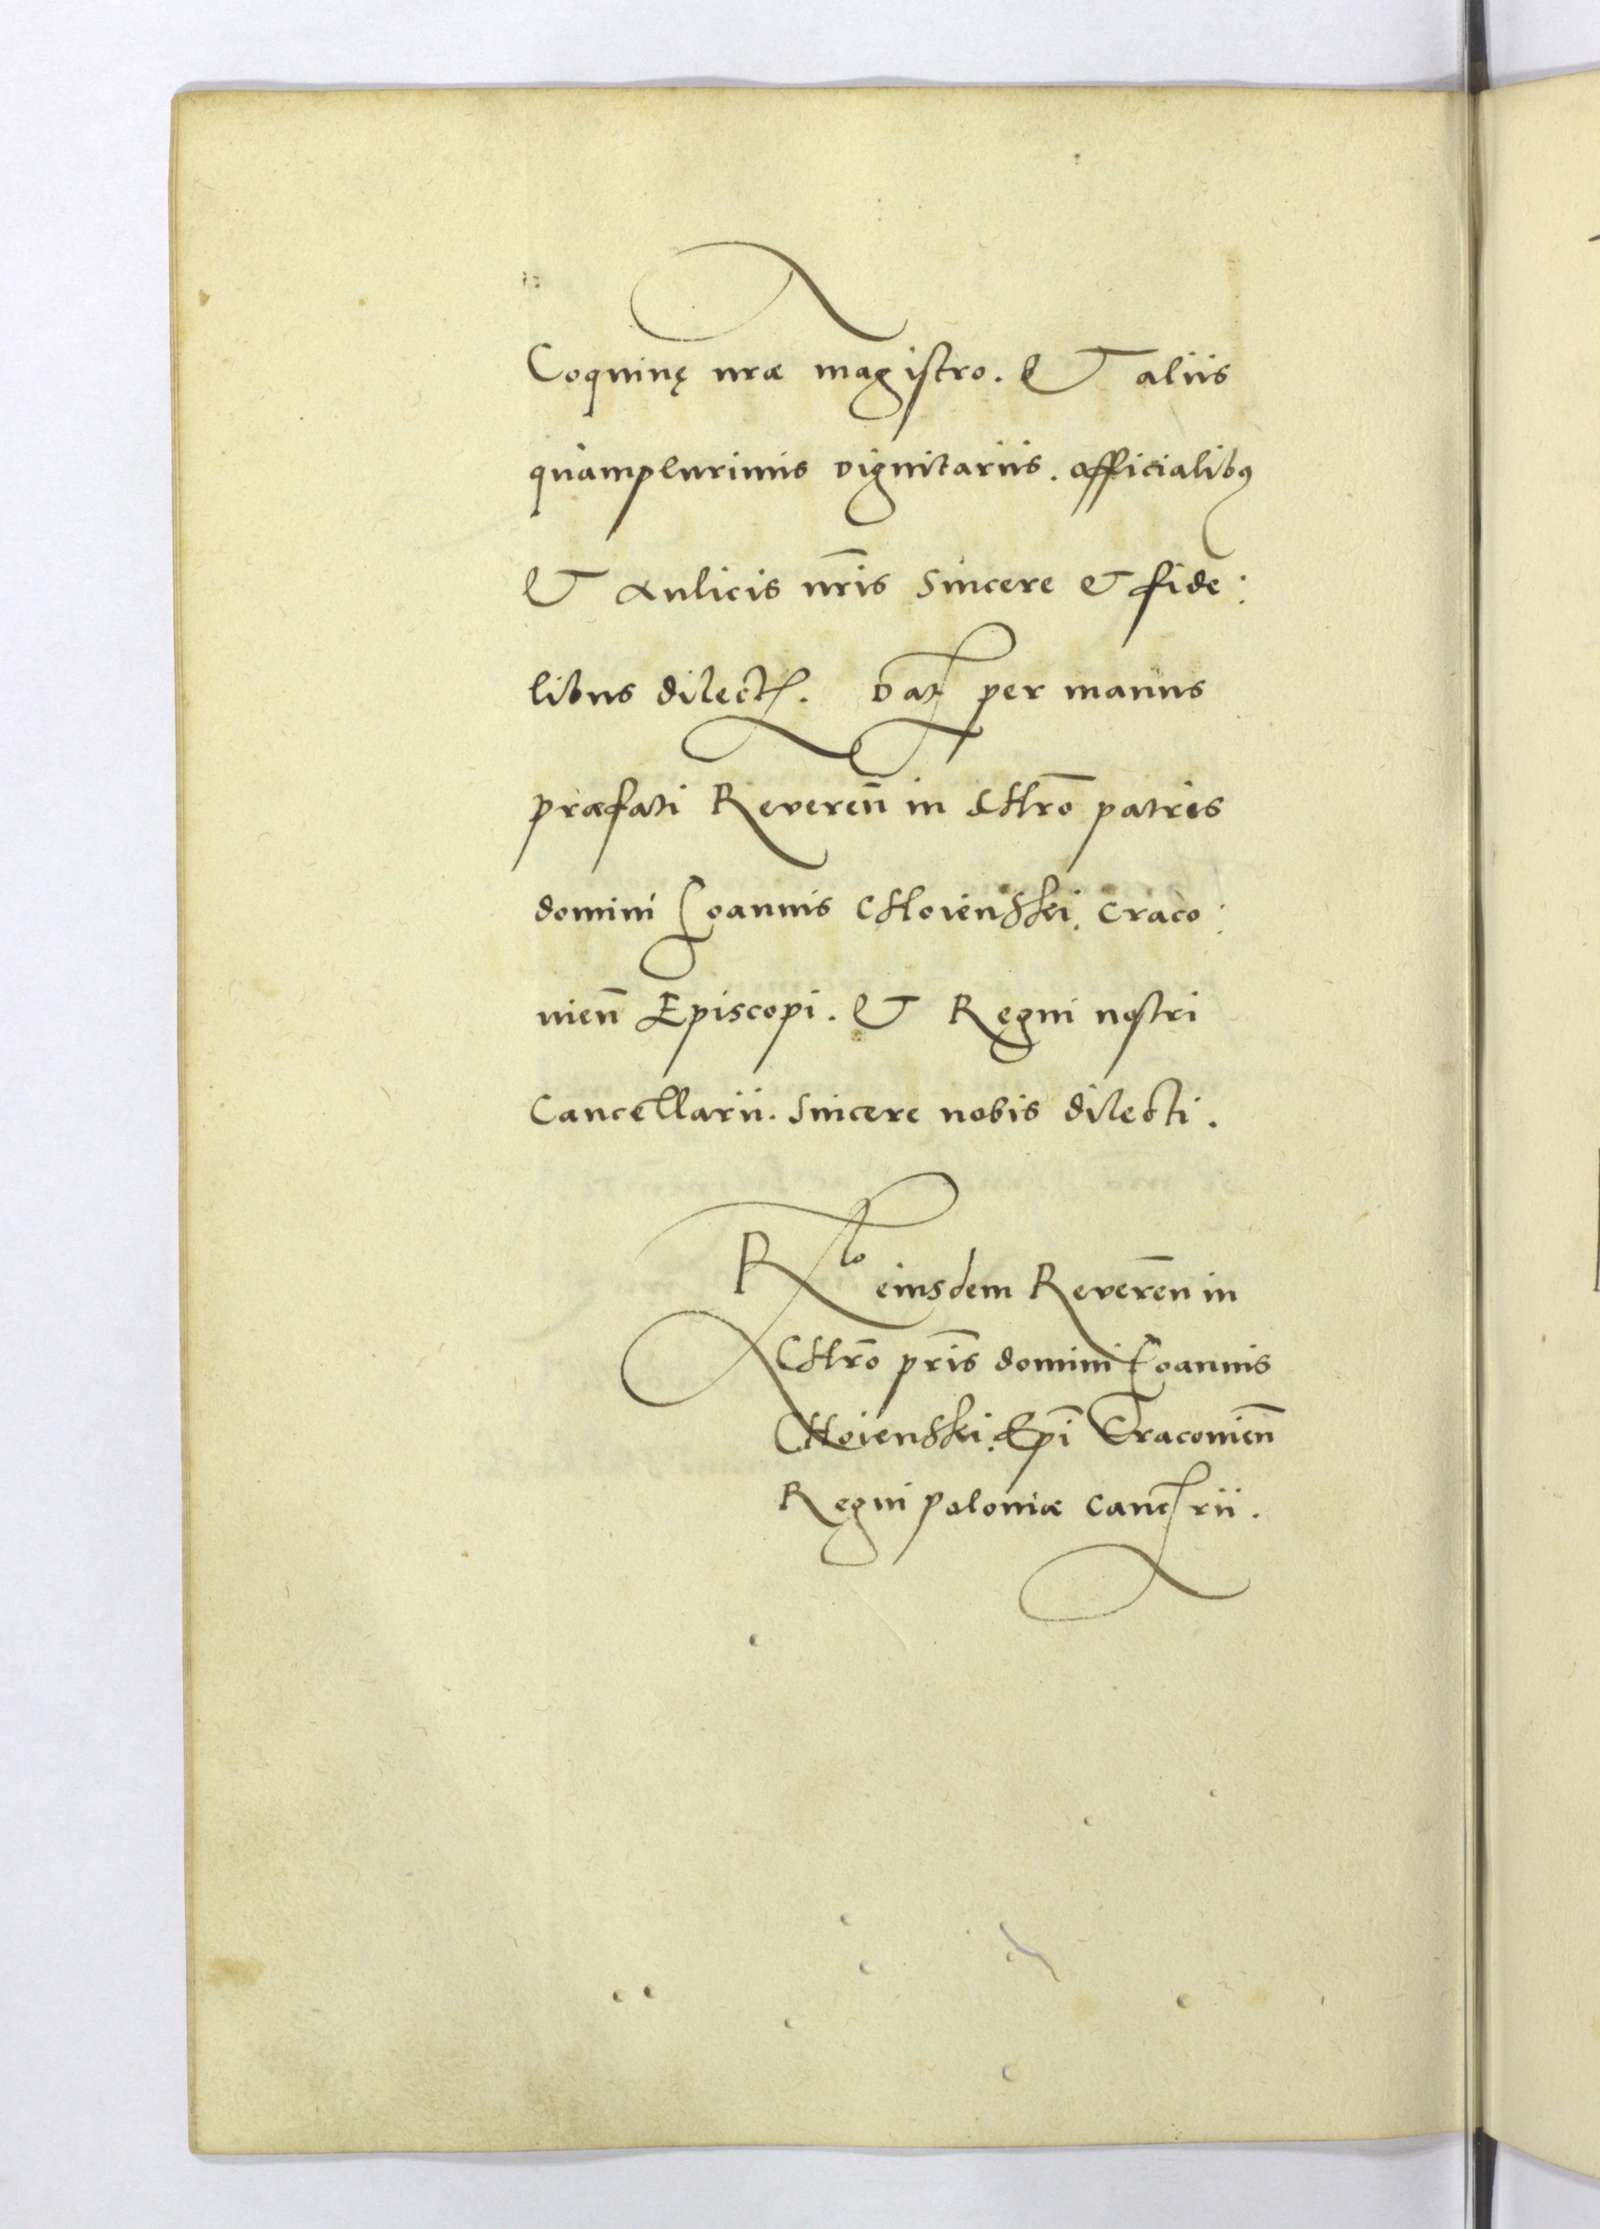 Coquinę nrae magistro. & aliis
quamplurimis dignitariis. officialibꝰ
& Aulicis nr̃is sincere & fide:
libus dilect. Dat per manus
praefati Reveren̄ in Chr̄o patris
domini Ioannis Choienski. Craco:
uien̄ Episcopi. & Regni nostri
Cancellarii. sincere nobis dilecti.
Rlo eiusdem Reverēn in
Chr̄o pr̄is domini Ioannis
Choienski. Ep̄i Cracouien̄
Regni poloniae canc rii.